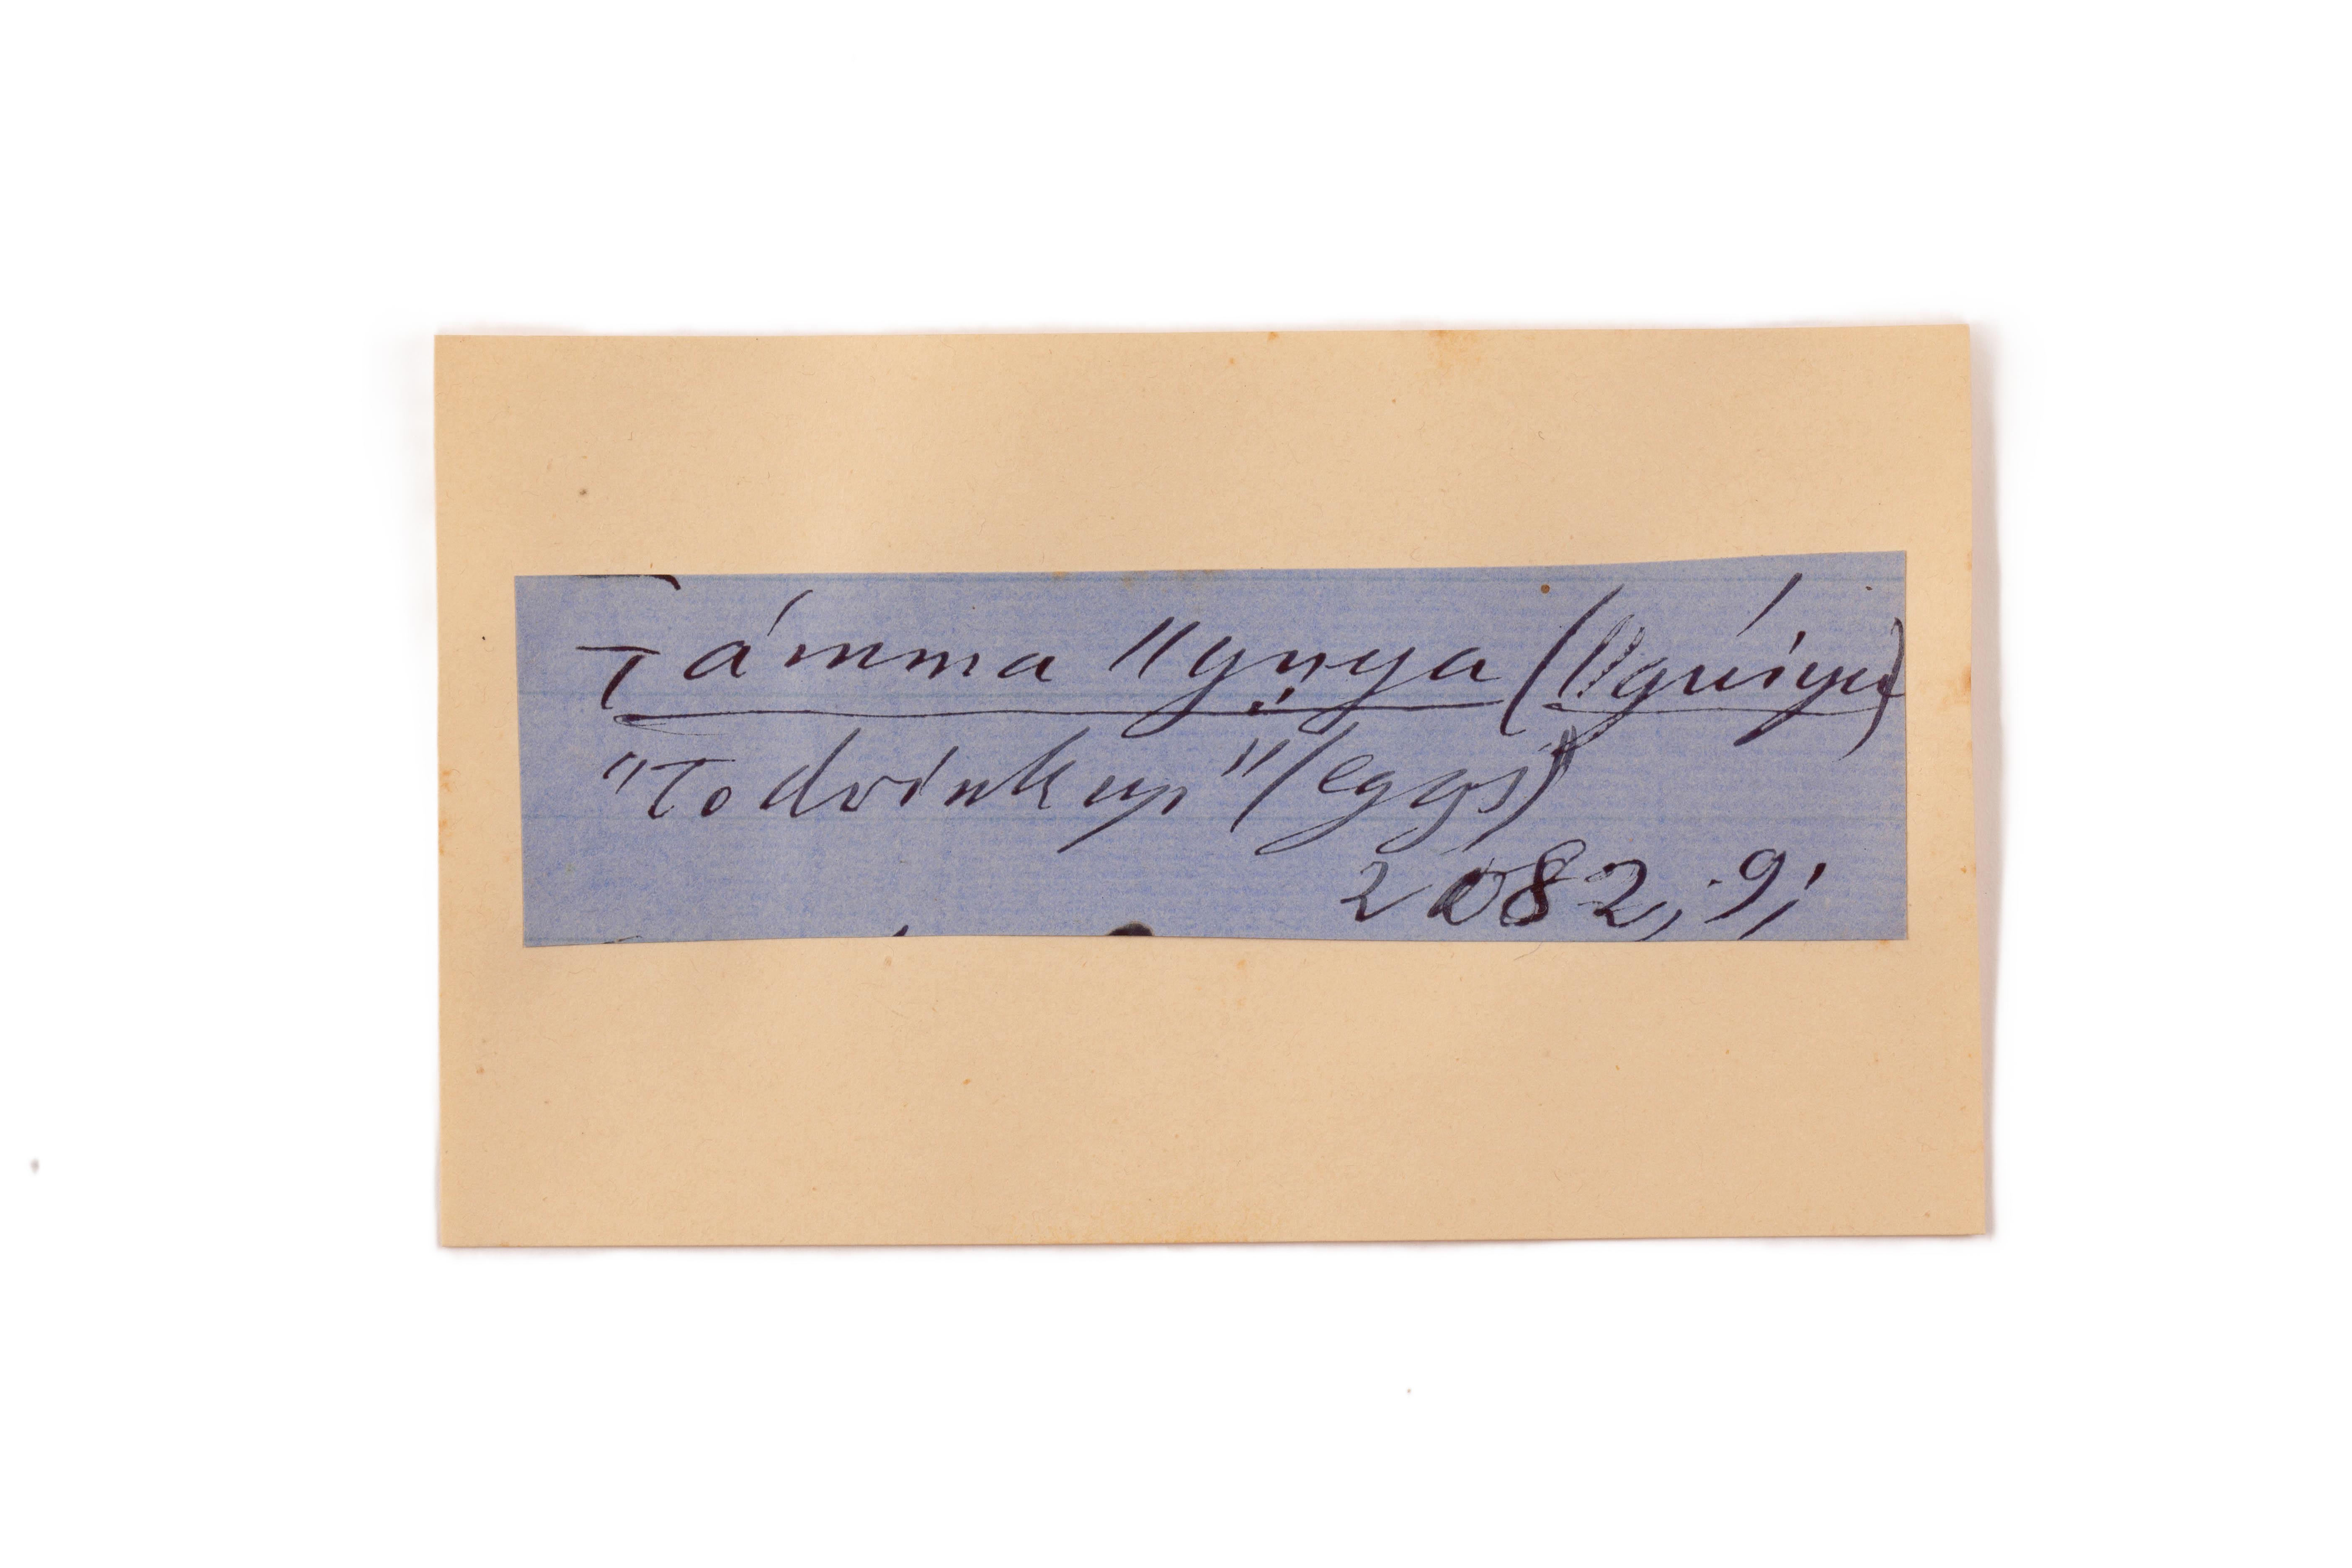 Támma ǁgṇya (ǁgúiya)
"To drink up" (eggs)
2082, 9;